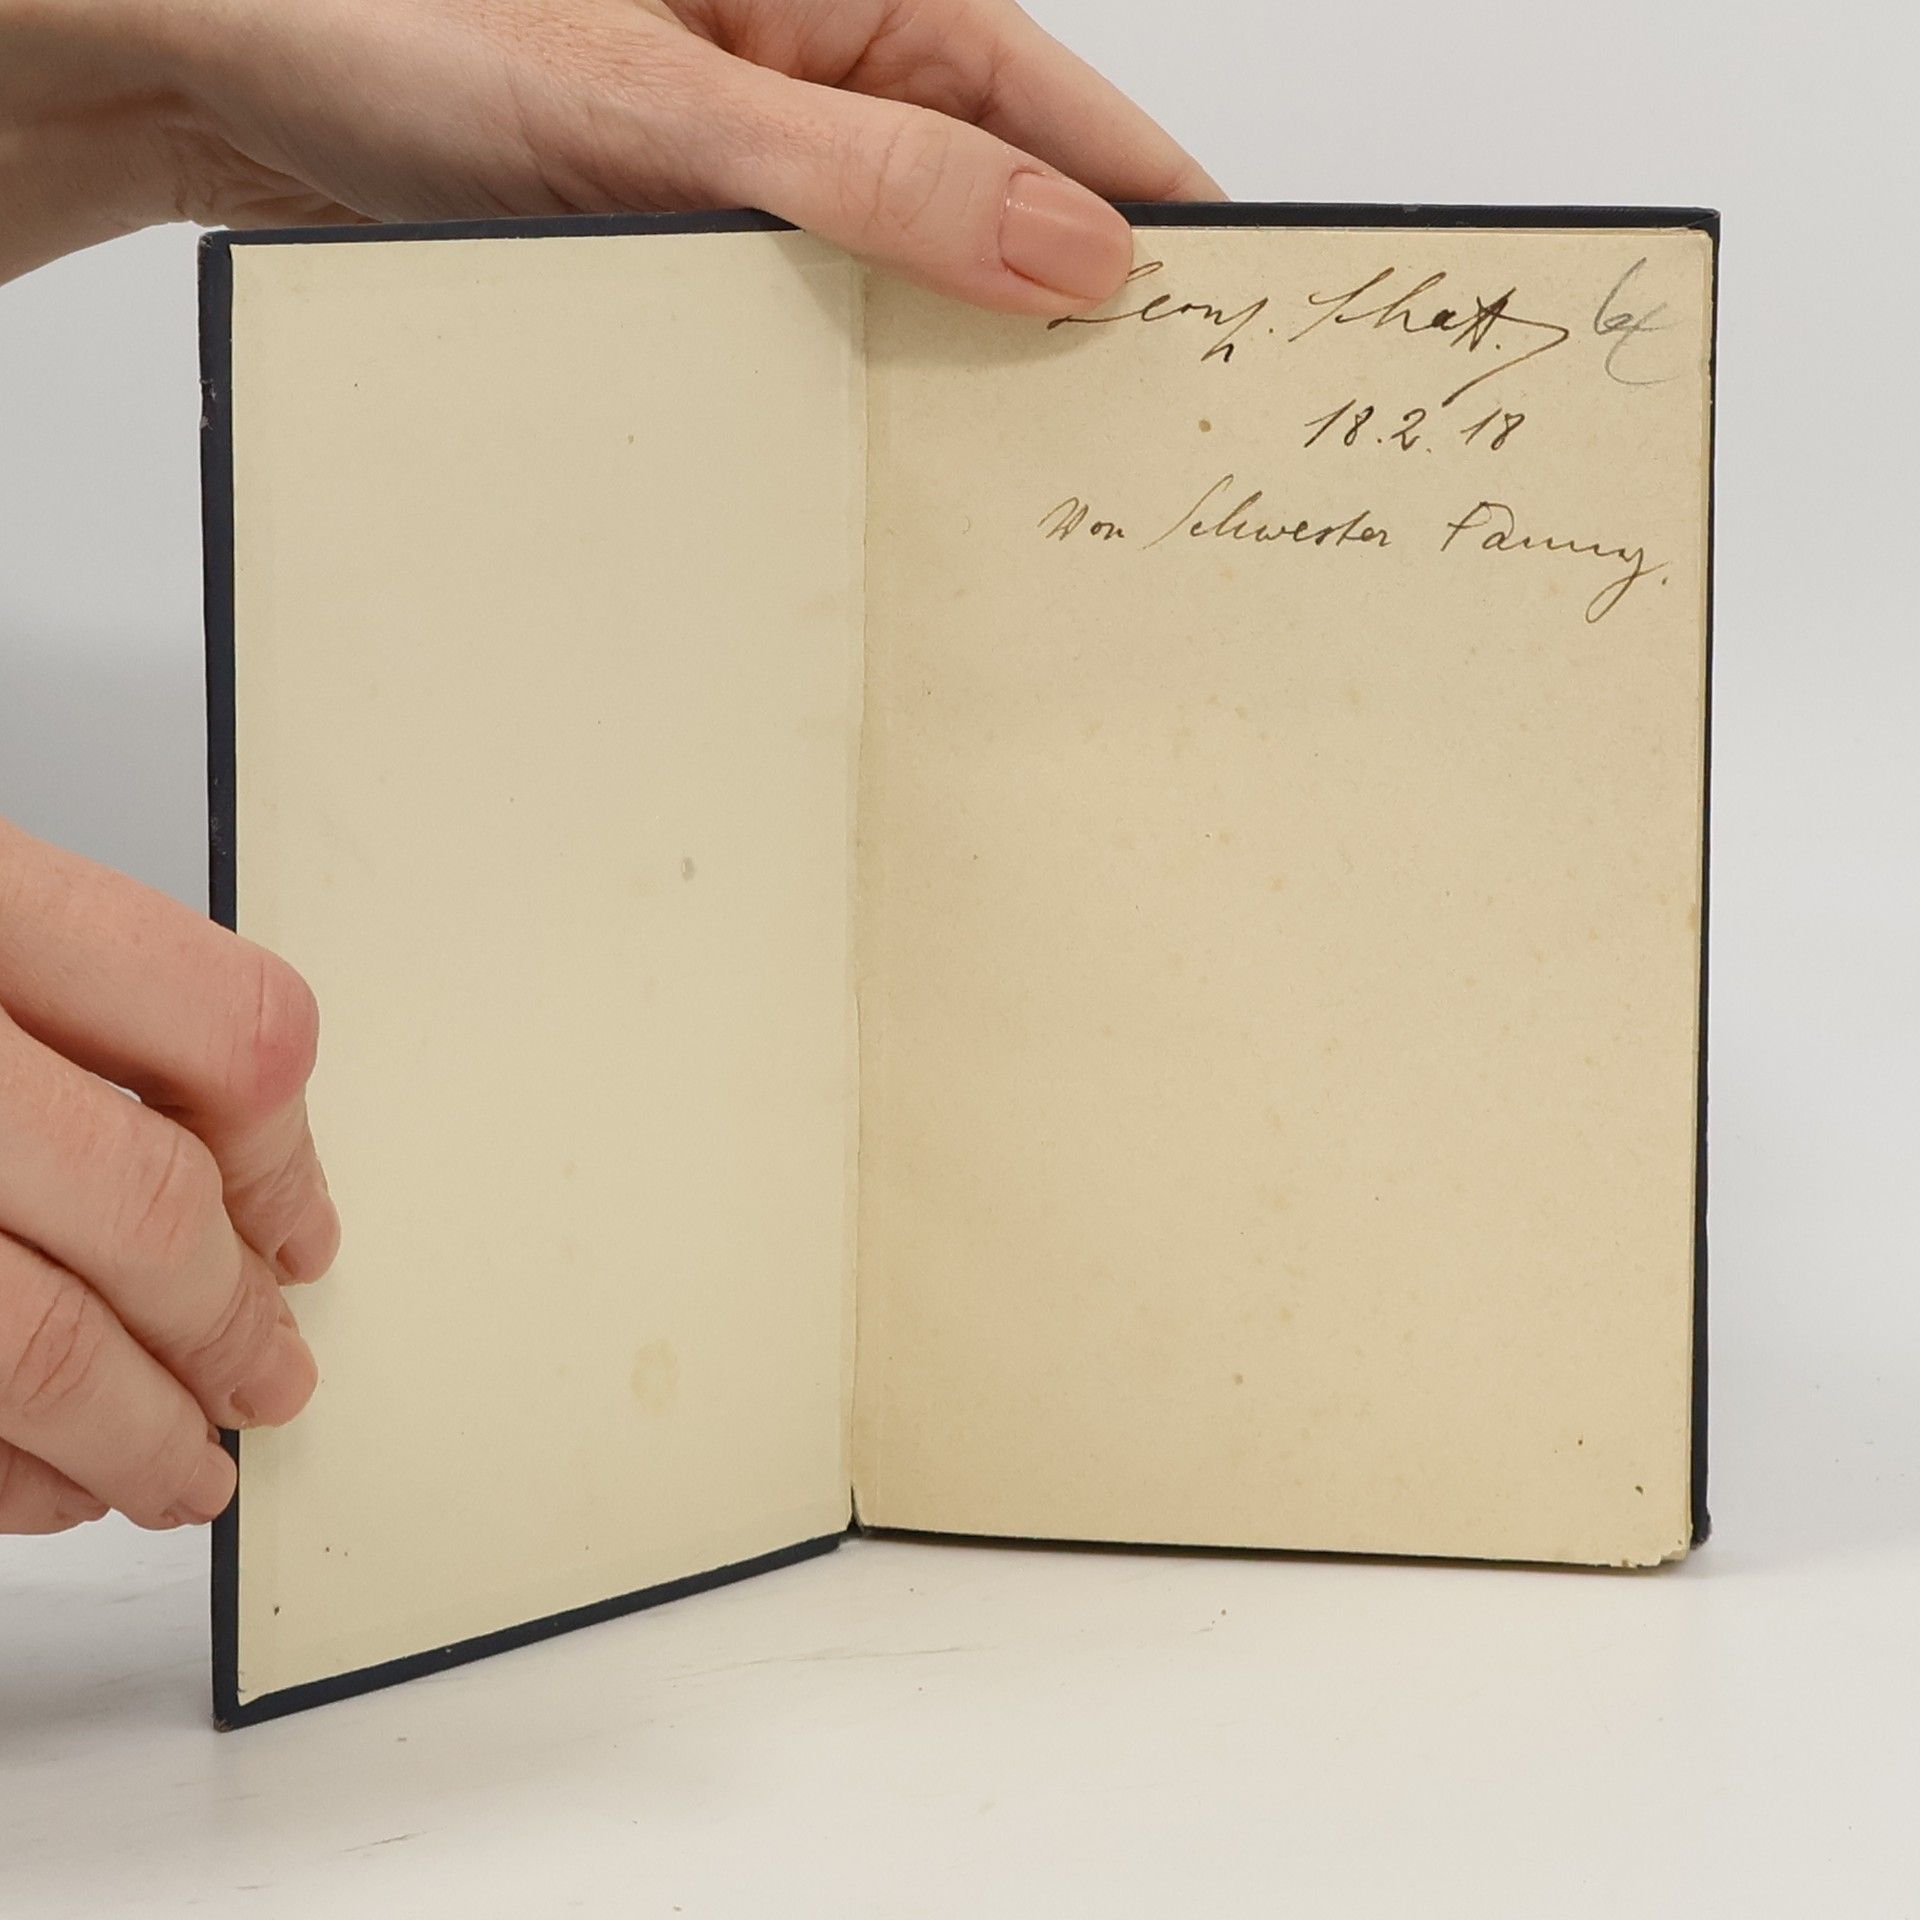 Leop. Schatt.
18.2.18
Von Schwester Fanny.